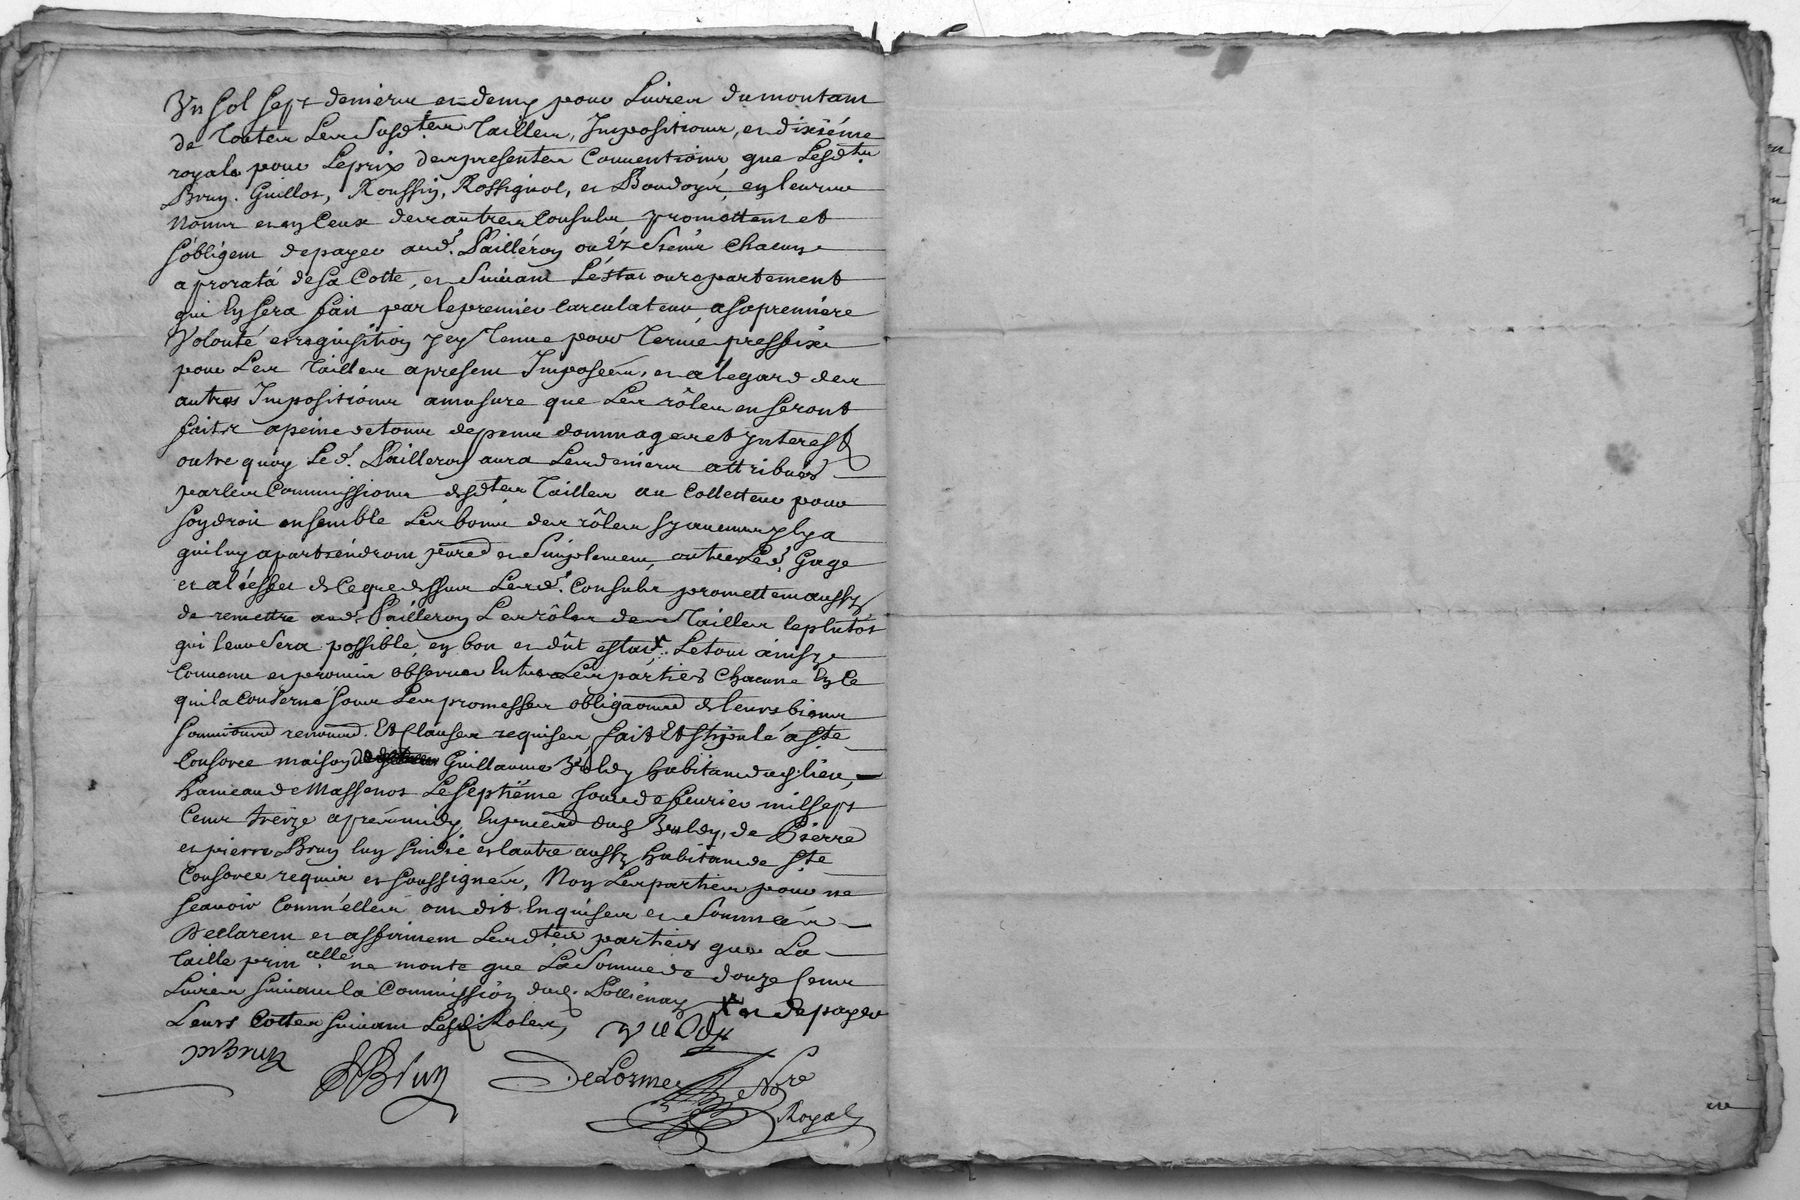 Un sol sept deniers et demy pour Livres du montant
de toutes Les susd.tes Tailles, Impositions, et dixiéme
royale pour Le prix des presentes Conventions que Lesd.ts
Brun, Guillot, Roussin, Rossignol, et Boudoyé, en leurs
Noms et en Ceux des autres Consuls promettent et
s'obligent de payer aud.t Pailleron où Ez siens Chacun
a proratá de sa Cotte, et suivant L'éstat ou repartement
qui En sera fait par le premier Carculateur a sa premiére
Volonté et requisition y ey Tenue pour Terme preffixe
pour Les Tailles apresent Imposées, et a l'egard des
autres Impositions a mesure que Les rôles en seront
faits a peine de tous depens dommages et ynterest
outre quoy Led.t Pailleron aura Les deniers attribués
par les Commissions desd.tes Tailles au Collecteur pour
son droit ensemble Les bons des rôles sy aucuns yl y a
qui luy apartiendront et simplement, outre Led.t Gage
et a l'éffet de ce que dessus Lesd.ts Consuls promettent aussy
de remettre aud.t Pailleron Les rôles des Tailles le plutôt
qui leur sera possible, en bon et dût estat x. Le tout ainsy
Convenu et promis observer Entre Les parties Chacune En Ce
qui la Conserne sous Les promesses obliga[...] de leurs biens
soum[...] renon[...] Et Clauses requises fait Et stipulé a Ste
Consorce maison de Guillaume habitant dud. lieu,
hameau de Massenot Le septiéme jour de fevrier mil sept
Cent treize aprés midy En presence dud. de Pierre
et pierre Brun l'un sindic et l'autre aussy habitans de Ste
Consorce requis et soussignés, Non Les parties pour ne
sçavoir Comm'elles ont dit Enquises et sommées
Declarent et affirment Lesd.tes parties que La
Taille prin.alle ne monte que La somme de douze Cent
Livres suivant la Commission dud.
x et de payer
Leurs Cottes suivant Lesd. Roles,
P Brun
P Brun
DeLorme
Nre
Royal